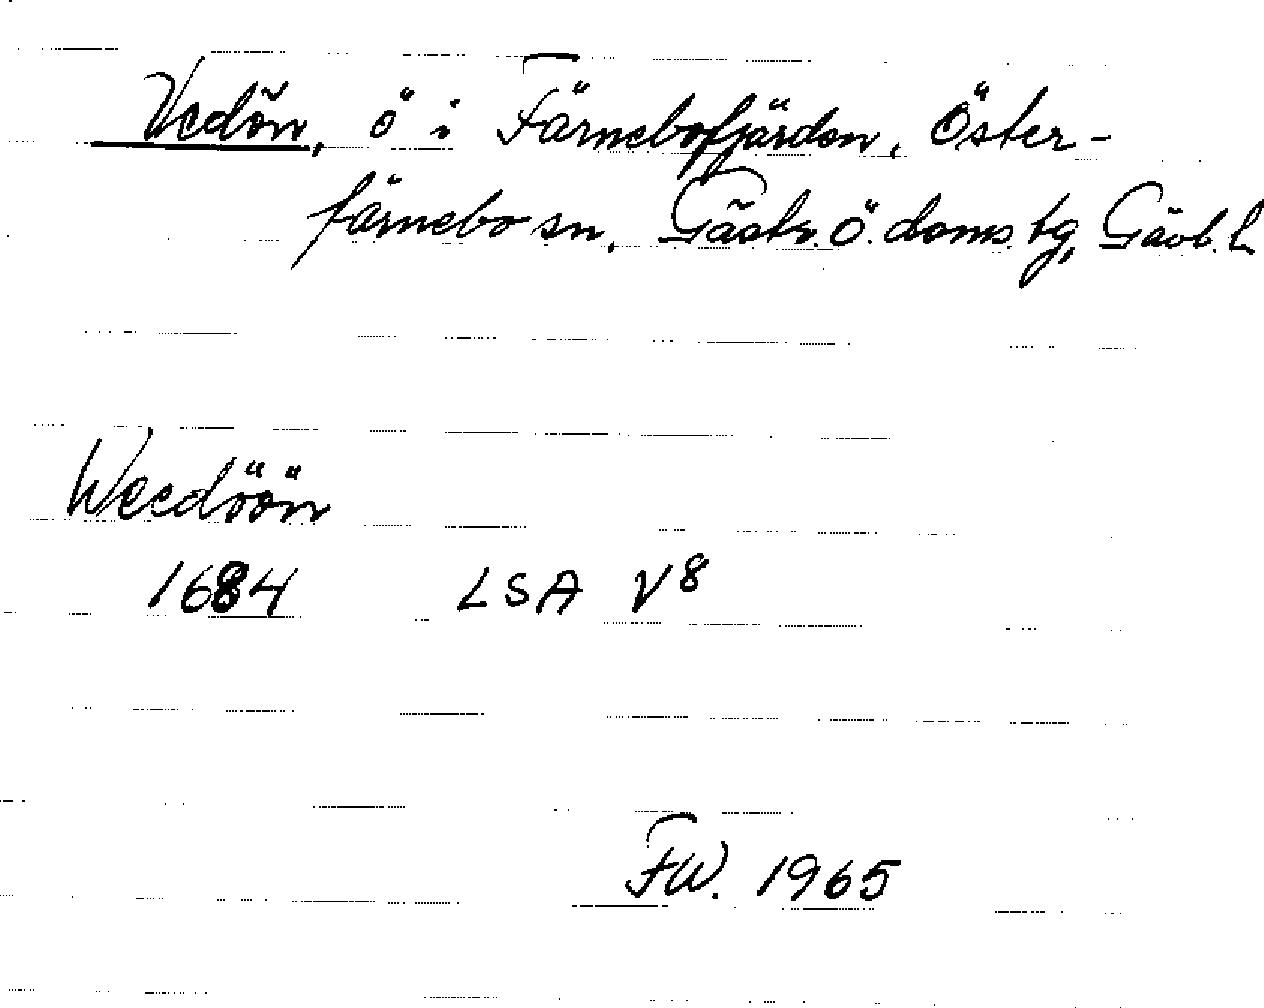 Vedön, ö i Färnebofjärden, Öster-
färnebo sn, Gästr. ö. doms. tg, Gävb. l
Weedöön
1684 LSA V8
FW. 1965